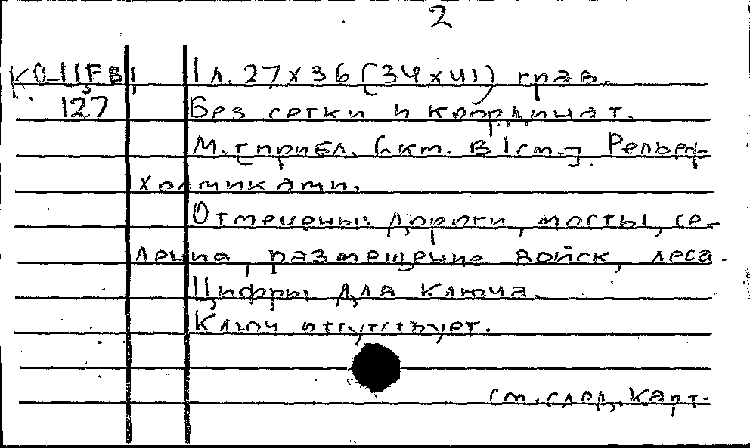 2
К 0-IIFв/ 1 л. 27×36 (34×41) грав.
127 Без сетки и координат.
М. [прибл. 6 км. в 1 см.]. Рельеф
холмиками.
Отмечены: дороги, мосты, се-
ления, размещение войск, леса.
Цифры для ключа.
Ключ отсутствует.
см. след. карт.